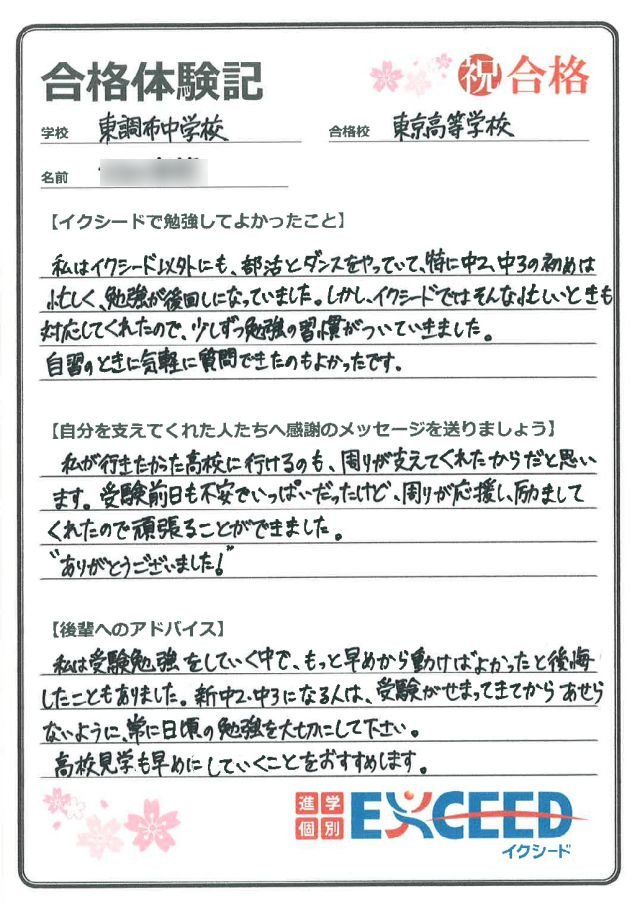 合格体験記
祝 合格
学校 東調布中学校
合格校 東京高等学校
名前
【イクシードで勉強してよかったこと】
私はイクシード以外にも、部活とダンスをやっていて、特に中2、中3の初めは
忙しく、勉強が後回しになっていました。しかし、イクシードではそんな忙しいときも
対応してくれたので、少しずつ勉強の習慣がついていきました。
自習のときに気軽に質問できたのもよかったです。
【自分を支えてくれた人たちへ感謝のメッセージを送りましょう】
私が行きたかった高校に行けるのも、周りが支えてくれたからだと思い
ます。受験前日も不安でいっぱいだったけど、周りが応援し、励まして
くれたので頑張ることができました。
"ありがとうございました!"
【後輩へのアドバイス】
私は受験勉強をしていく中で、もっと早めから動けばよかったと後悔
したこともありました。新中2・中3になる人は、受験がせまってきてからあせら
ないように、常に日頃の勉強を大切にして下さい。
高校見学も早めにしていくことをおすすめします。
進学
個別
EXCEED
イクシード